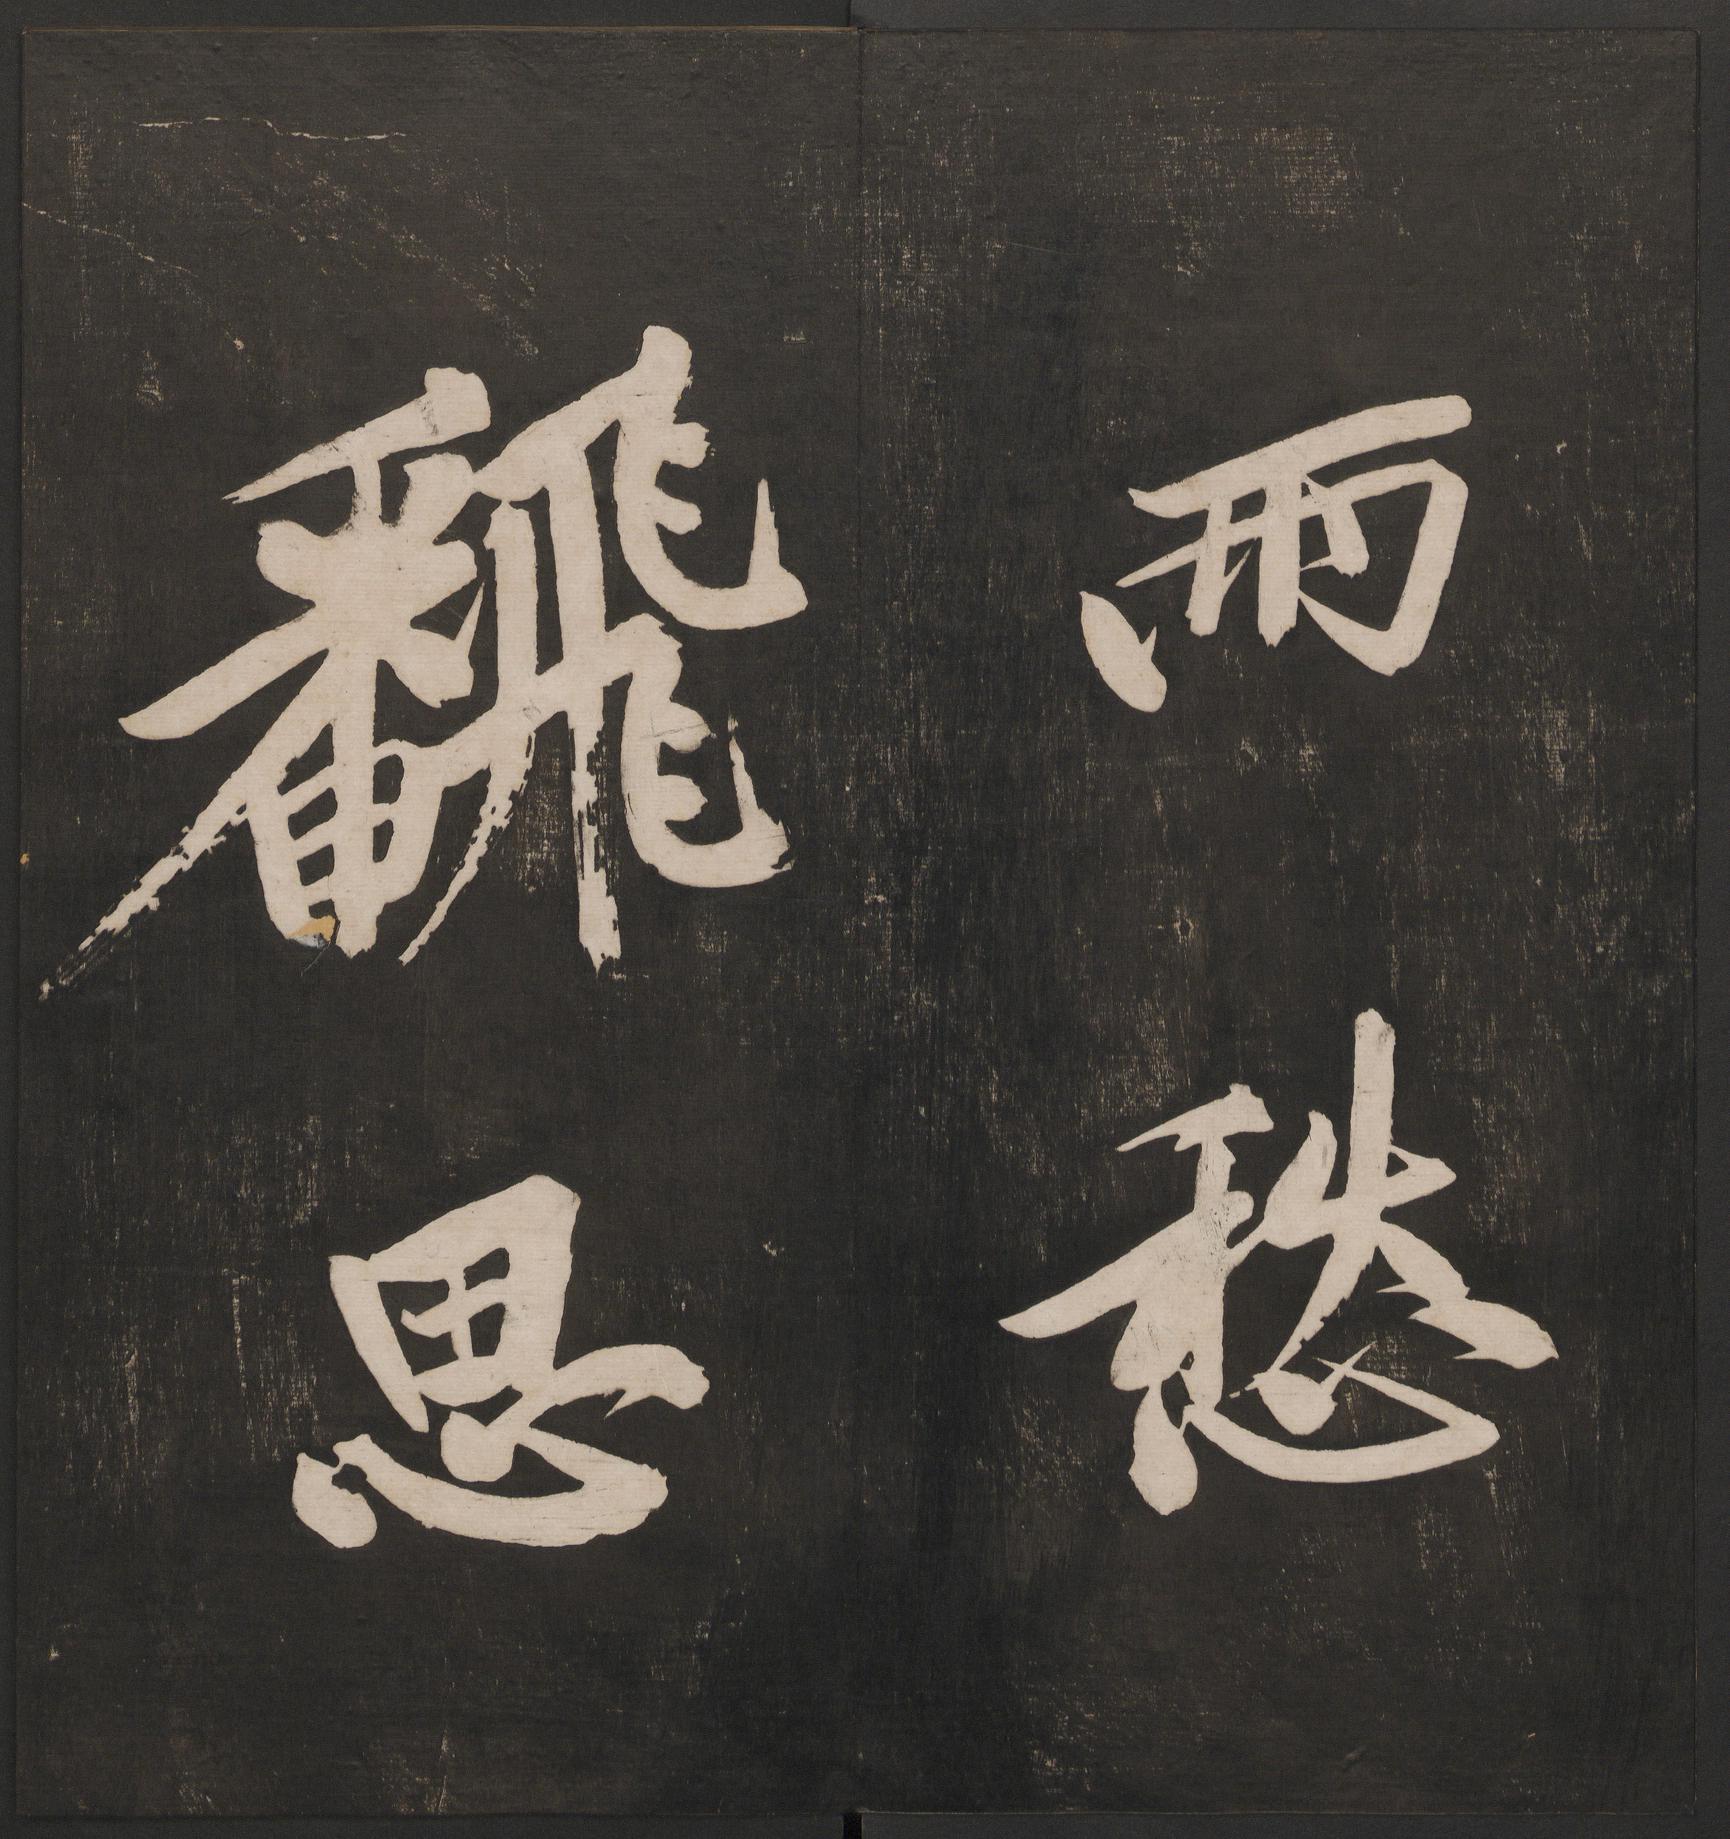 雨愁
飜思